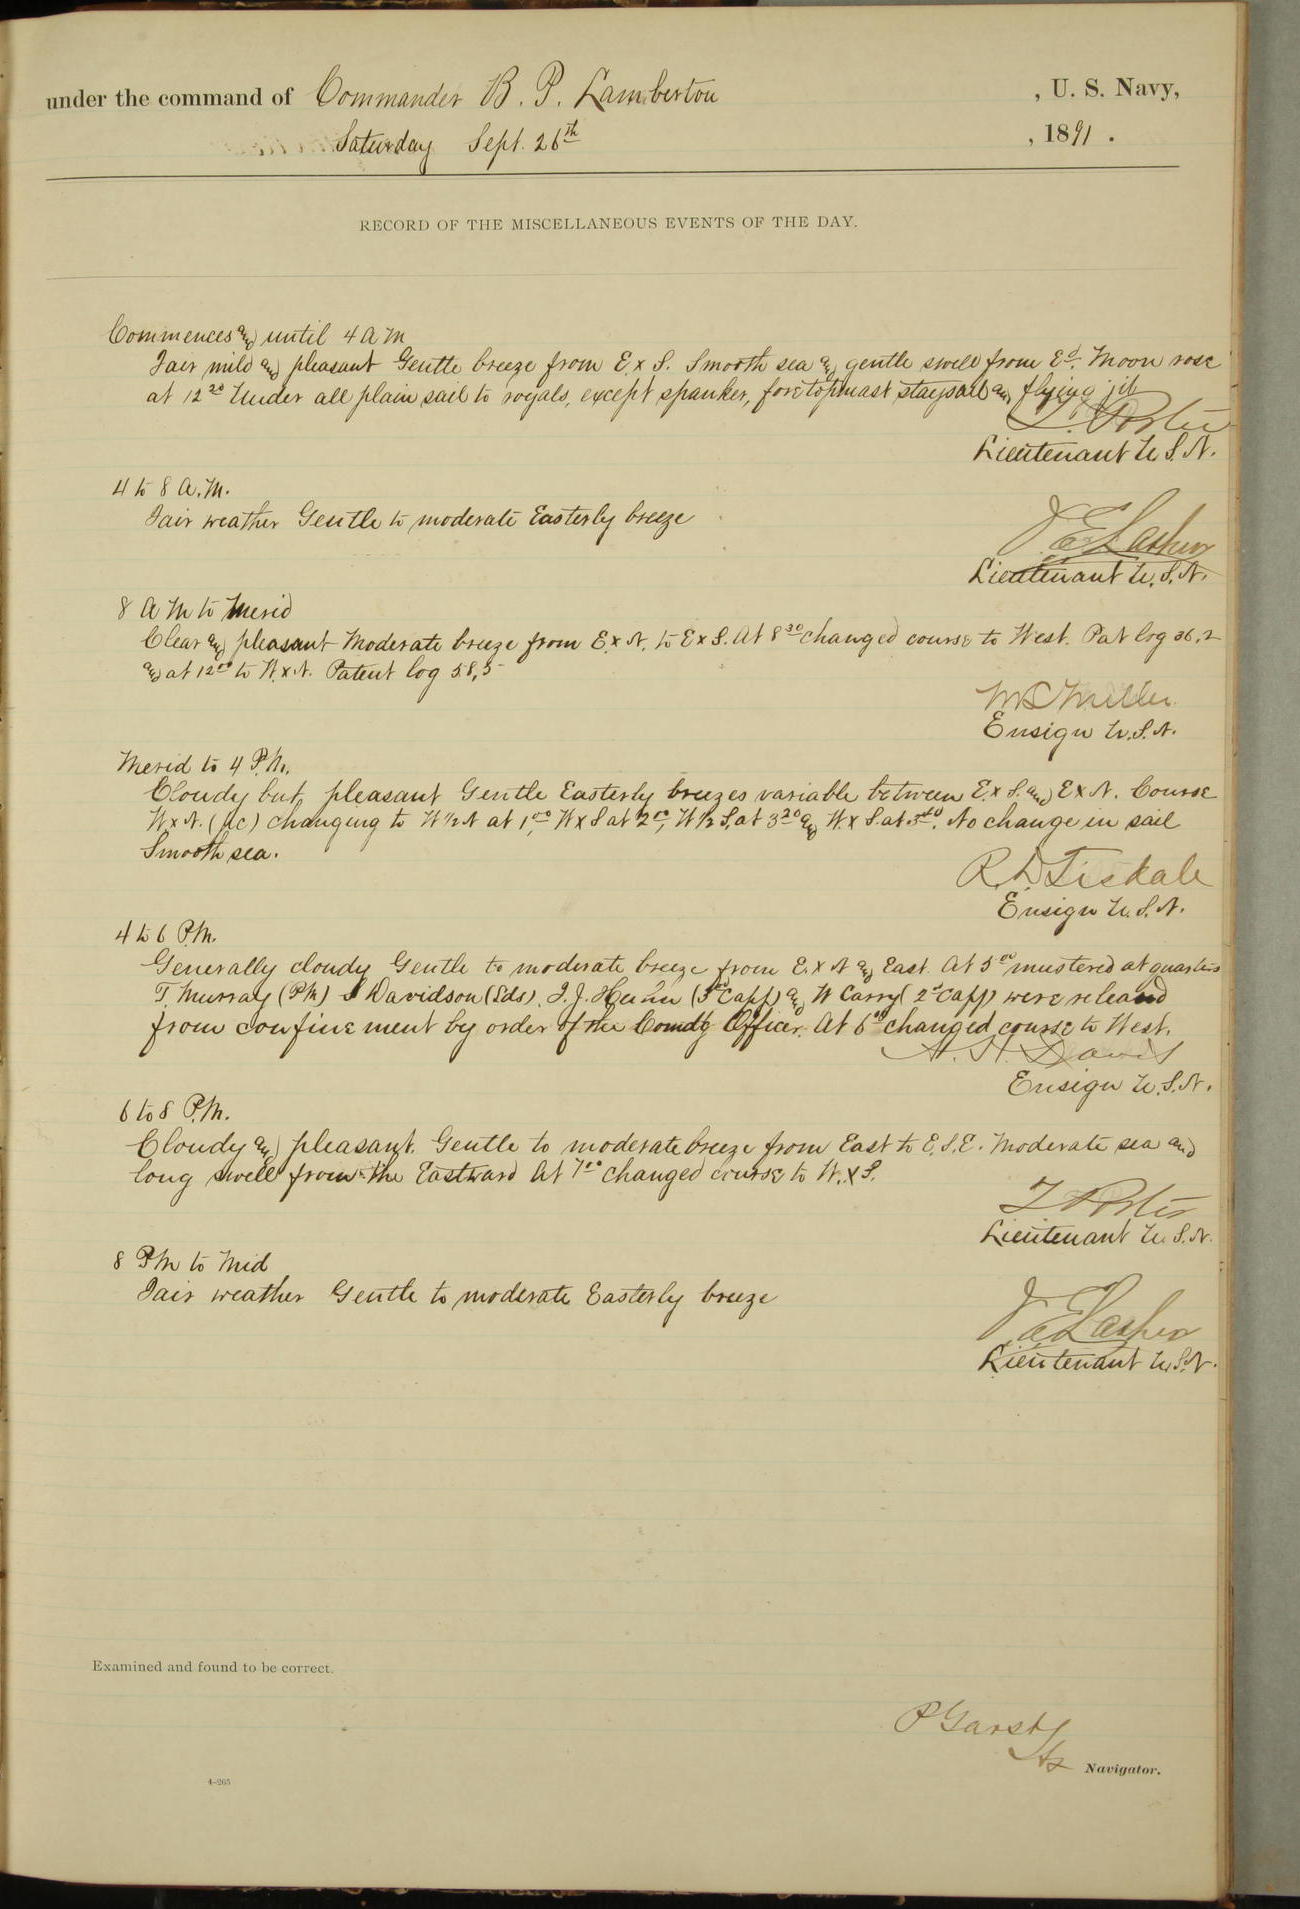 under the command of Commander B. P. Lamberton , U. S. Navy,
Saturday Sept. 26th , 1891 .
RECORD OF THE MISCELLANEOUS EVENTS OF THE DAY.
Commences and until 4 A M
Fair mild and pleasant Gentle breeze from E x S. Smooth sea and gentle swell from Ed. Moon rose
at 12 20 Under all plain sail to royals, except spanker, foretopmast staysail and flying jib
T. Porter
Lieutenant U.S.N.
4 to 8 A.M.
Fair weather Gentle to moderate Easterly breeze
Lieutenant U.S.N.
8 A M to Merid
Clear and pleasant Moderate breeze from E x N. to E x S. At 8 30 changed course to West. Pat log 36.2
and at 12 00 to W x N. Patent log 58,5
Miller
Ensign U.S.N.
Merid to 4 P.M.
Cloudy but pleasant Gentle Easterly breezes variable between E. x S. and E x N. Course
W x N. (pc) changing to W ½ N at 1 00, W x S at 2 00, W ½ S, at 3 20 and W. x S. at 3 40. No change in sail
Smooth sea.
R. D Tisdale
Ensign U.S.N.
4 to 6 P.M.
Generally cloudy Gentle to moderate breeze from E. x N and East. At 5 00 mustered at quarters
T. Murray (PM) Davidson (Lds), J. J. (3d C aff) and W Carry (2d C aff) were released
from confinement by order of the Comdg Officer. At 6 00 changed course to West.
Davis
Ensign U.S.N.
6 to 8 P.M.
Cloudy and pleasant. Gentle to moderate breeze from East to E.S.E. Moderate sea and
long swell from the Eastward At 7 00 changed course to W. x S.
T Porter
Lieutenant U.S.N.
8 PM to Mid
Fair weather Gentle to moderate Easterly breeze
Lieutenant U.S.N.
Examined and found to be correct.
P Garst
Navigator.
4–265